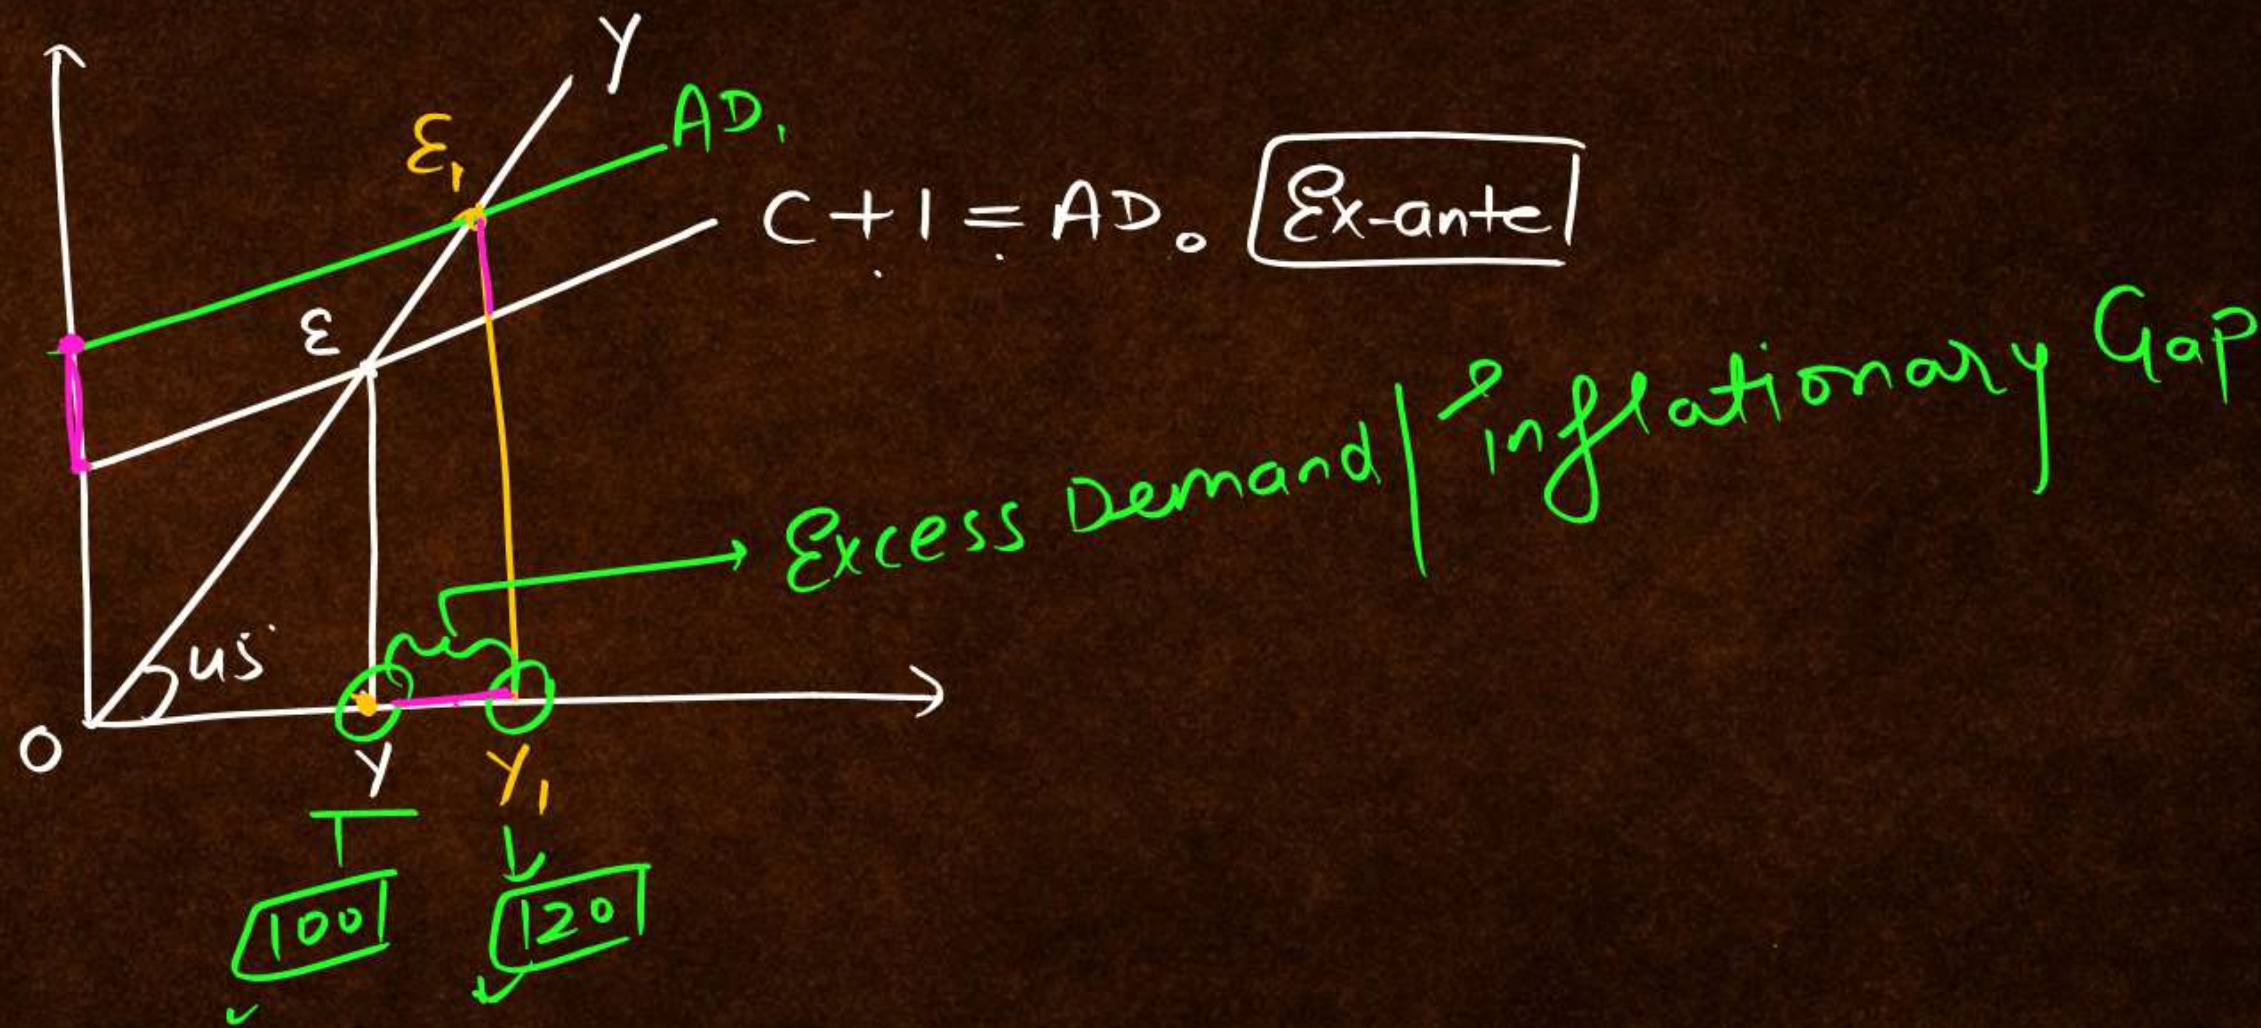 Y
AD₁
Ɛ₁
C + I = AD₀ Ex-ante
Ɛ
Excess Demand / Inflationary Gap
45°
O
Y Y₁
100 120